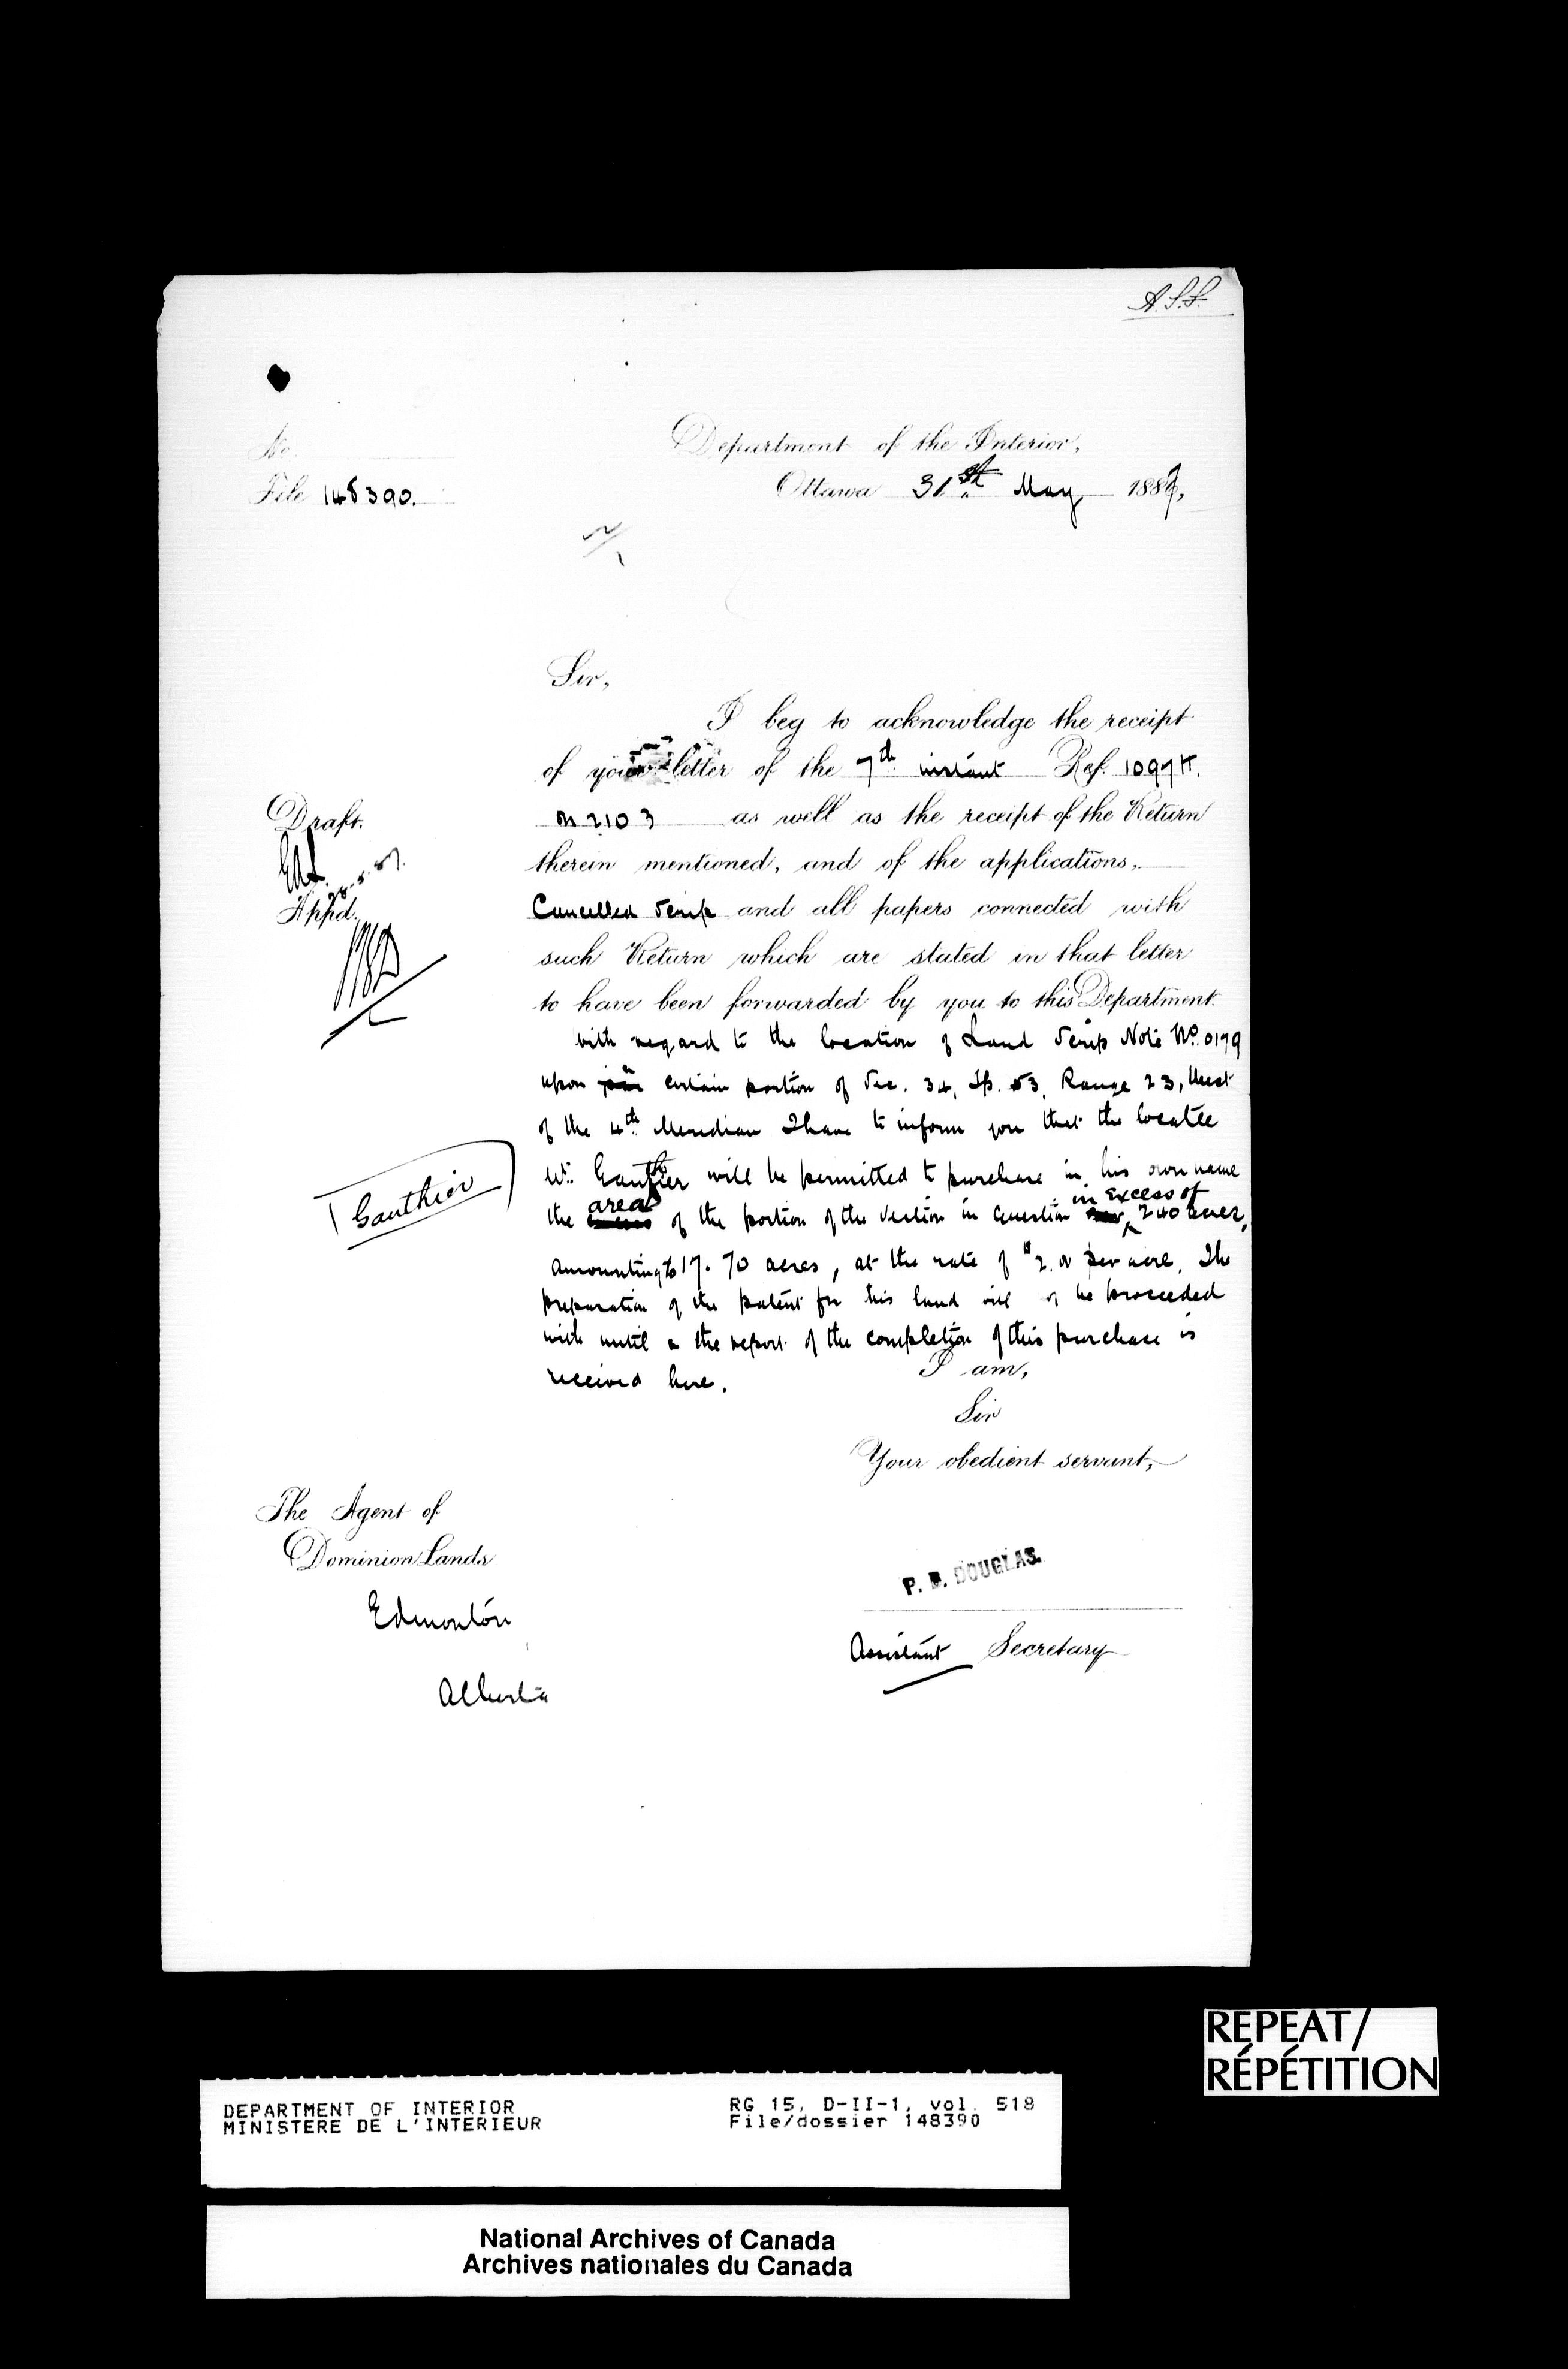 A.S.S.
No.
File 148390.
Department of the Interior,
Ottawa 31st May 1887,
Sir,
I beg to acknowledge the receipt
of your letter of the 7th instant Ref. 1097 H.
on 2103 as well as the receipt of the Return
therein mentioned, and of the applications,
Cancelled Scrip and all papers connected with
such Return which are stated in that letter
to have been forwarded by you to this Department.
Draft.
Appd.
with regard to the location of Land Scrip Note No. 0179
upon a certain portion of Sec. 34, Tp. 53, Range 23, West
of the 4th Meridian I have to inform you that the locatee
Mr. Gauthier will be permitted to purchase in his own name
the area of the portion of the Section in question in excess of 240 acres,
amounting to 17.70 acres, at the rate of $2.00 per acre. The
preparation of the patent for this land will be proceeded
with until the report of the completion of this purchase is
received here.
Gauthier
I am,
Sir
Your obedient servant,
The Agent of
Dominion Lands
Edmonton
Alberta
P. B. DOUGLAS.
Assistant Secretary
REPEAT/
RÉPÉTITION
DEPARTMENT OF INTERIOR RG 15, D-II-1, vol. 518
MINISTERE DE L'INTERIEUR File/dossier 148390
National Archives of Canada
Archives nationales du Canada